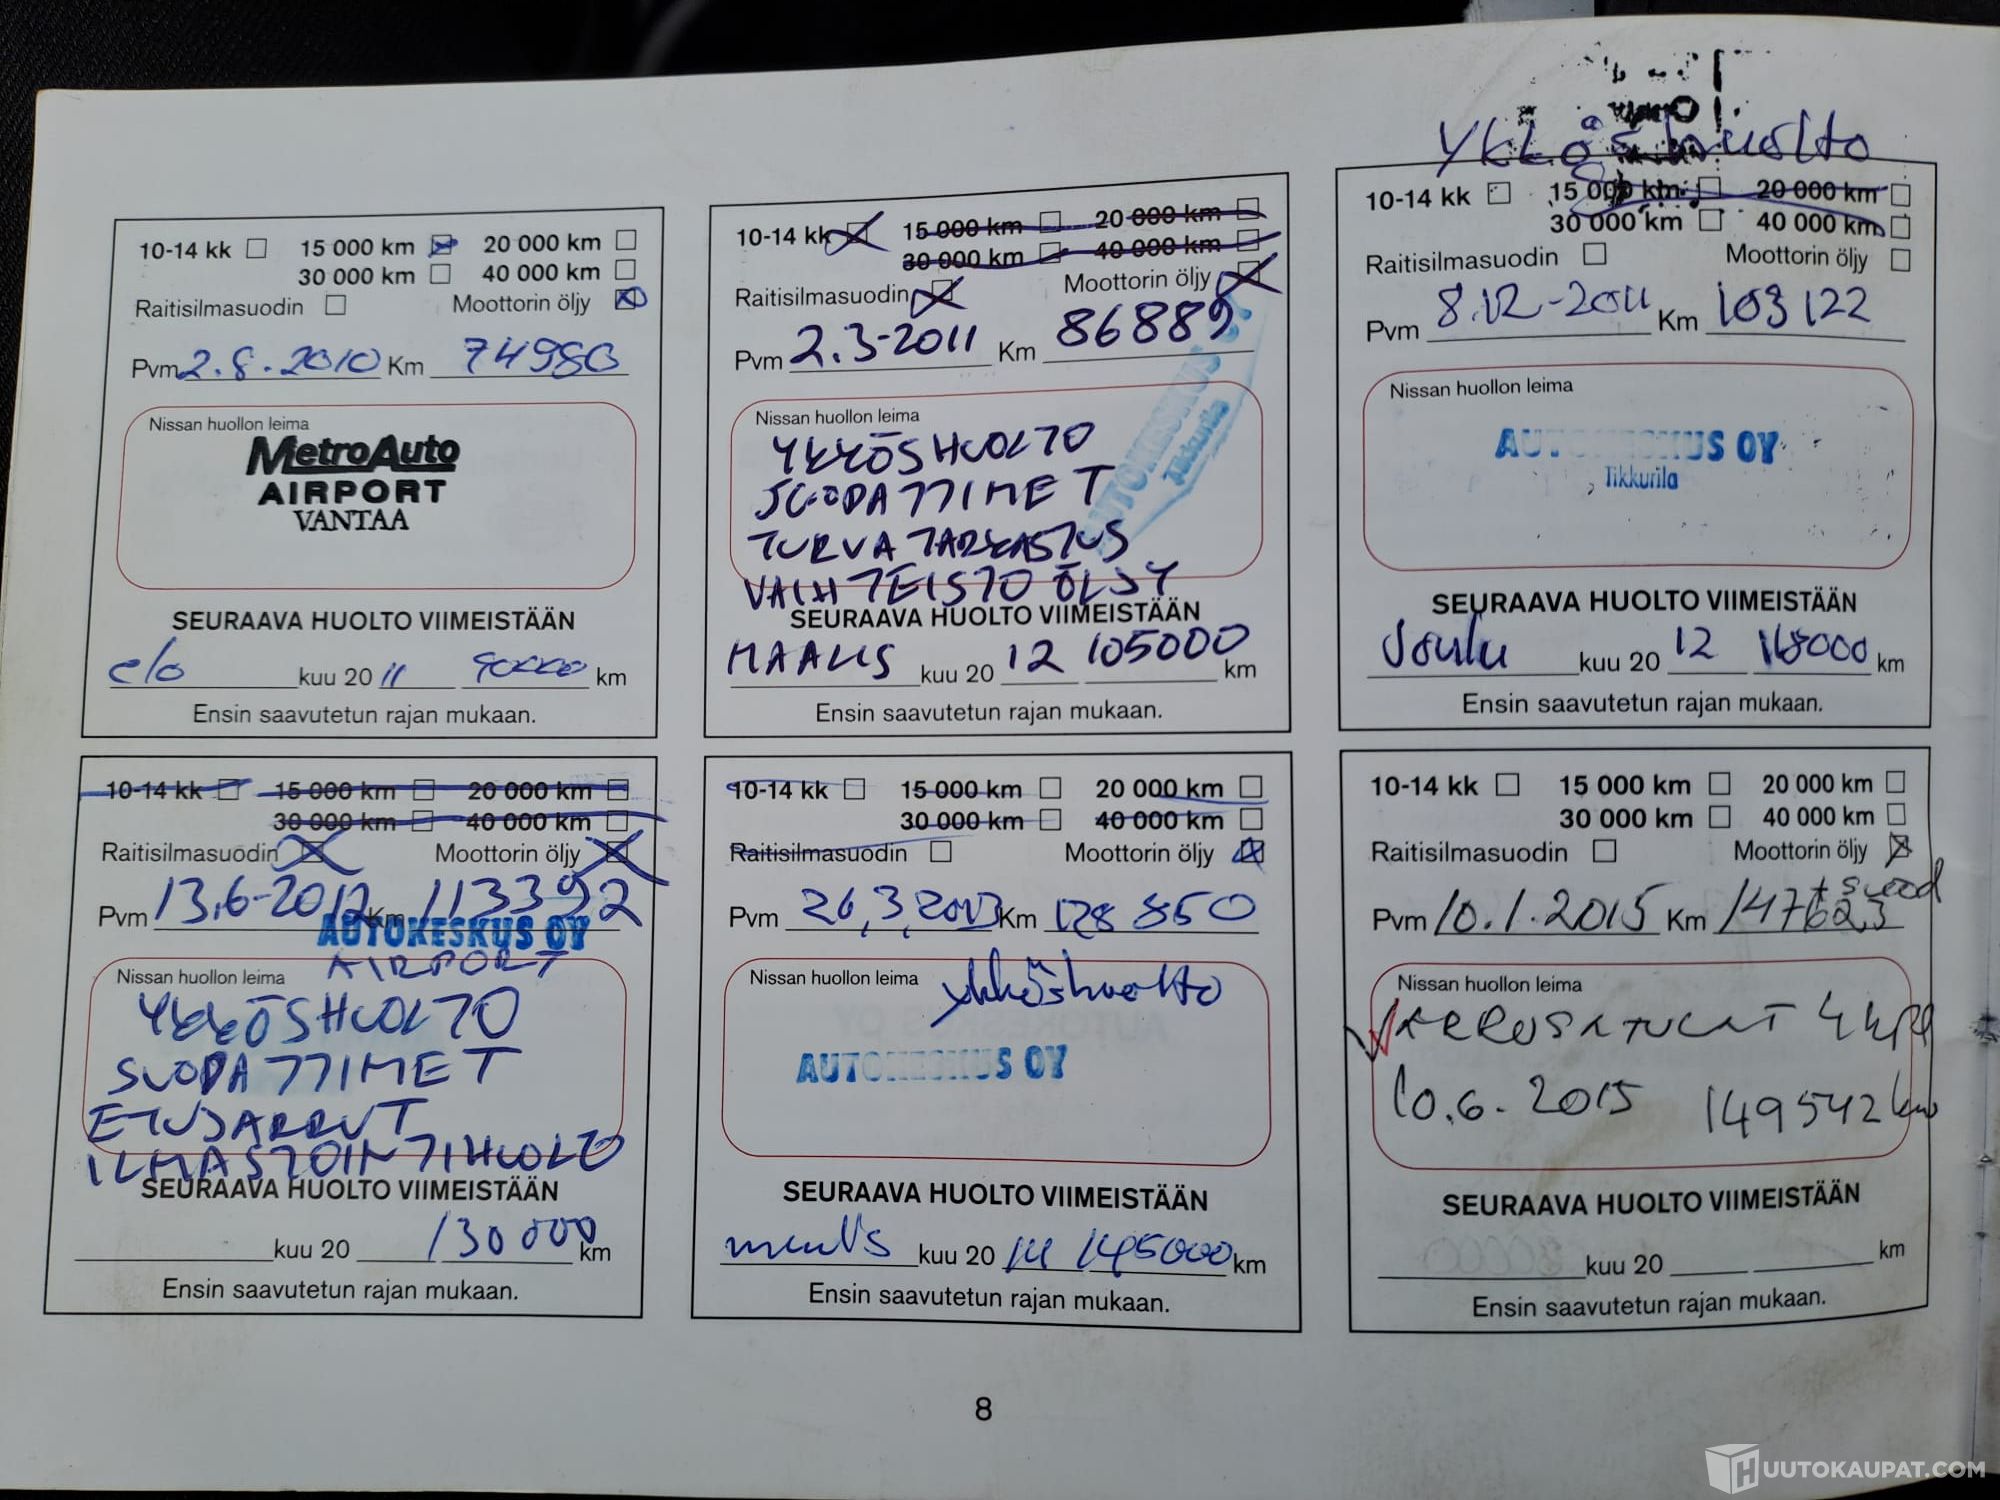 10-14 kk 15 000 km 20 000 km
30 000 km 40 000 km
Raitisilmasuodin Moottorin öljy
Pvm 2.8.2010 Km 74980
Nissan huollon leima
MetroAuto
AIRPORT
VANTAA
SEURAAVA HUOLTO VIIMEISTÄÄN
elo kuu 20 11 90000 km
Ensin saavutetun rajan mukaan.
10-14 kk 15 000 km 20 000 km
30 000 km 40 000 km
Raitisilmasuodin Moottorin öljy
Pvm 2.3-2011 Km 86889
Nissan huollon leima
AUTOKESKUS OY
Tikkurila
YKKÖSHUOLTO
SUODATTIMET
TURVATARKASTUS
VAIHTEISTOÖLJY
SEURAAVA HUOLTO VIIMEISTÄÄN
MAALIS kuu 20 12 105000 km
Ensin saavutetun rajan mukaan.
10-14 kk 15 000 km 20 000 km
30 000 km 40 000 km
Raitisilmasuodin Moottorin öljy
Pvm 8.12-2011 Km 103122
Nissan huollon leima
AUTOKESKUS OY
Tikkurila
SEURAAVA HUOLTO VIIMEISTÄÄN
Joulu kuu 20 12 118000 km
Ensin saavutetun rajan mukaan.
10-14 kk 15 000 km 20 000 km
30 000 km 40 000 km
Raitisilmasuodin Moottorin öljy
Pvm 13.6-2012 Km 113392
AUTOKESKUS OY
AIRPORT
Nissan huollon leima
YKKÖSHUOLTO
SUODATTIMET
ETUJARRUT
ILMASTOINTIHUOLTO
SEURAAVA HUOLTO VIIMEISTÄÄN
kuu 20 130 000 km
Ensin saavutetun rajan mukaan.
10-14 kk 15 000 km 20 000 km
30 000 km 40 000 km
Raitisilmasuodin Moottorin öljy
Pvm 26.3.2013 Km 128 850
Nissan huollon leima
ykköshuolto
AUTOKESKUS OY
SEURAAVA HUOLTO VIIMEISTÄÄN
maalis kuu 20 14 145000 km
Ensin saavutetun rajan mukaan.
10-14 kk 15 000 km 20 000 km
30 000 km 40 000 km
Raitisilmasuodin Moottorin öljy
+ suod
Pvm 10.1.2015 Km 147623
Nissan huollon leima
JARRUSATULAT 4 kpl
10.6.2015 149542 km
SEURAAVA HUOLTO VIIMEISTÄÄN
kuu 20 km
Ensin saavutetun rajan mukaan.
8
HUUTOKAUPAT.COM